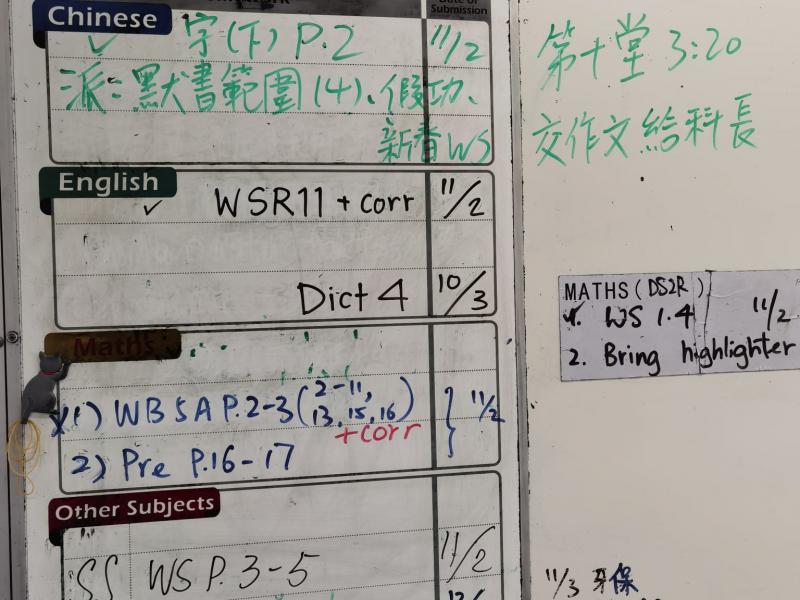 Date of
Submission
Chinese
✓ 字(下) P.2 11/2
派：默書範圍(4)、假功、
新春WS
English
✓ WSR11 + corr 11/2
Dict 4 10/3
Maths
1) WB 5A P.2-3 (2-11, 13, 15, 16) 11/2
+corr
2) Pre P.16-17
Other Subjects
SS WS P.3-5 11/2
第十堂 3:20
交作文給科長
MATHS (DS2R)
1. WS 1.4 11/2
2. Bring highlighter
11/3 牙保